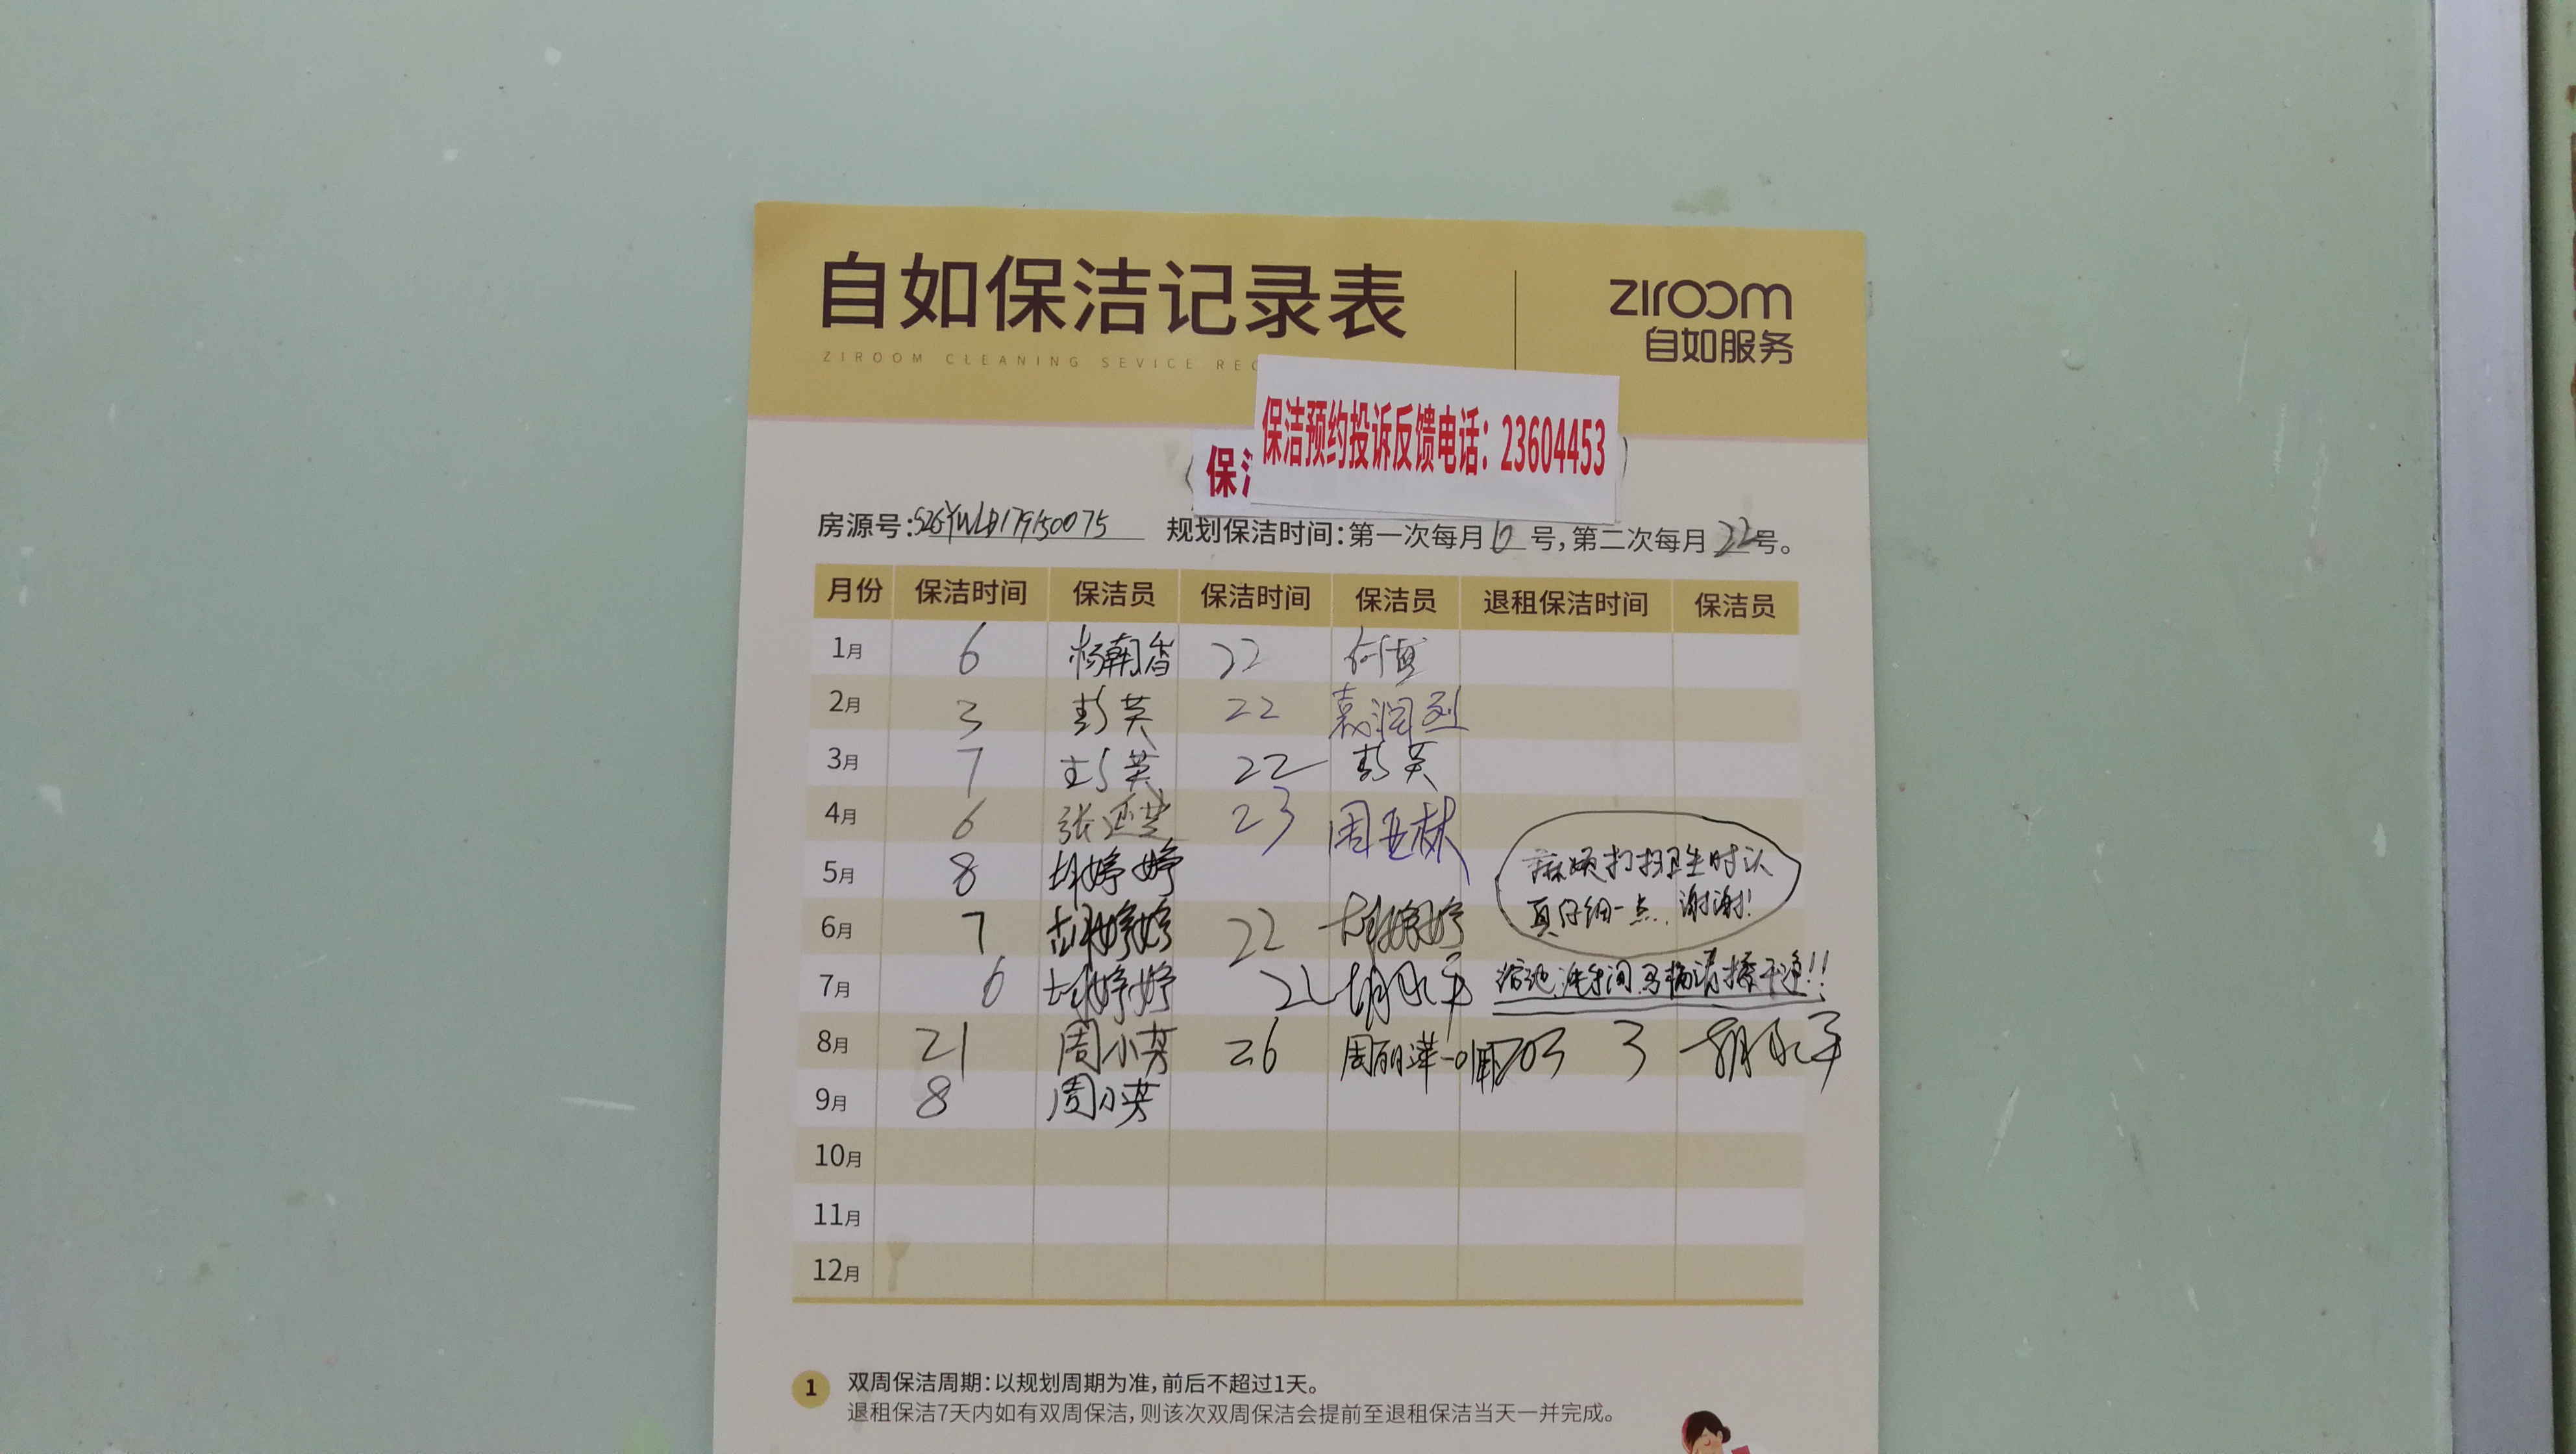 自如保洁记录表
ZIROOM CLEANING SEVICE REC
ziroom
自如服务
保洁预约投诉反馈电话：23604453
保洁
房源号：SZGYWLB179150075 规划保洁时间：第一次每月6号，第二次每月22号。
月份 保洁时间 保洁员 保洁时间 保洁员 退租保洁时间 保洁员
1月 6 杨朝香 22
2月 3 彭英 22
3月 7 彭英 22 彭英
4月 6 23 周亚林
5月 8 胡婷婷
麻烦打扫卫生时认
真仔细一点，谢谢！
6月 7 胡婷婷 22 胡婷婷
7月 6 胡婷婷 22 胡永平 浴池、洗手间、马桶请擦干净!!
8月 21 周小芳 26 周丽萍 703 3 胡永平
9月 8 周小芳
10月
11月
12月
1 双周保洁周期：以规划周期为准，前后不超过1天。
退租保洁7天内如有双周保洁，则该次双周保洁会提前至退租保洁当天一并完成。